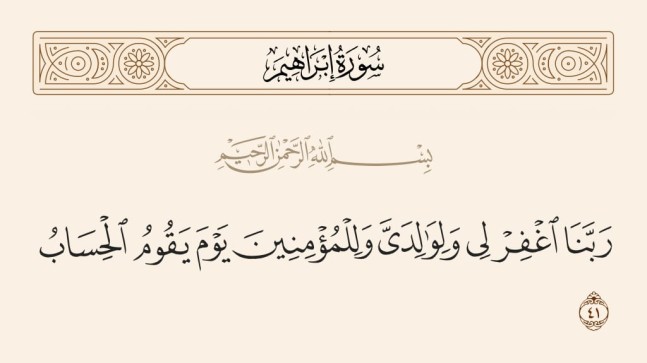 سُورَةُ إِبْرَاهِيمَ
بِسْمِ ٱللَّهِ ٱلرَّحْمَٰنِ ٱلرَّحِيمِ
رَبَّنَا ٱغْفِرْ لِى وَلِوَٰلِدَىَّ وَلِلْمُؤْمِنِينَ يَوْمَ يَقُومُ ٱلْحِسَابُ
٤١